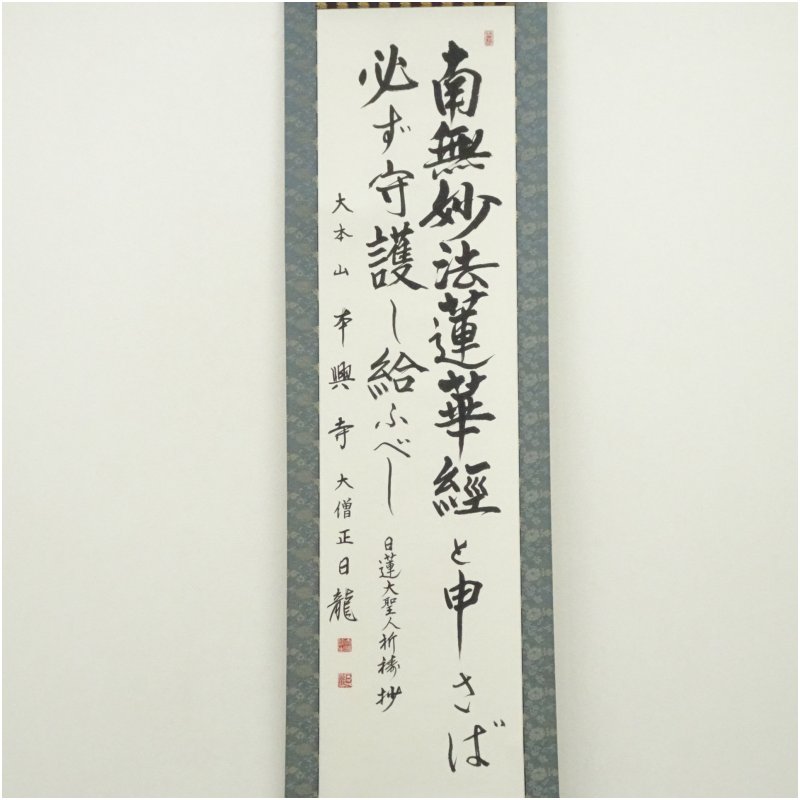 南無妙法蓮華経と申さば
必ず守護し給ふべし
日蓮大聖人祈祷抄
大本山 本興寺 大僧正日龍